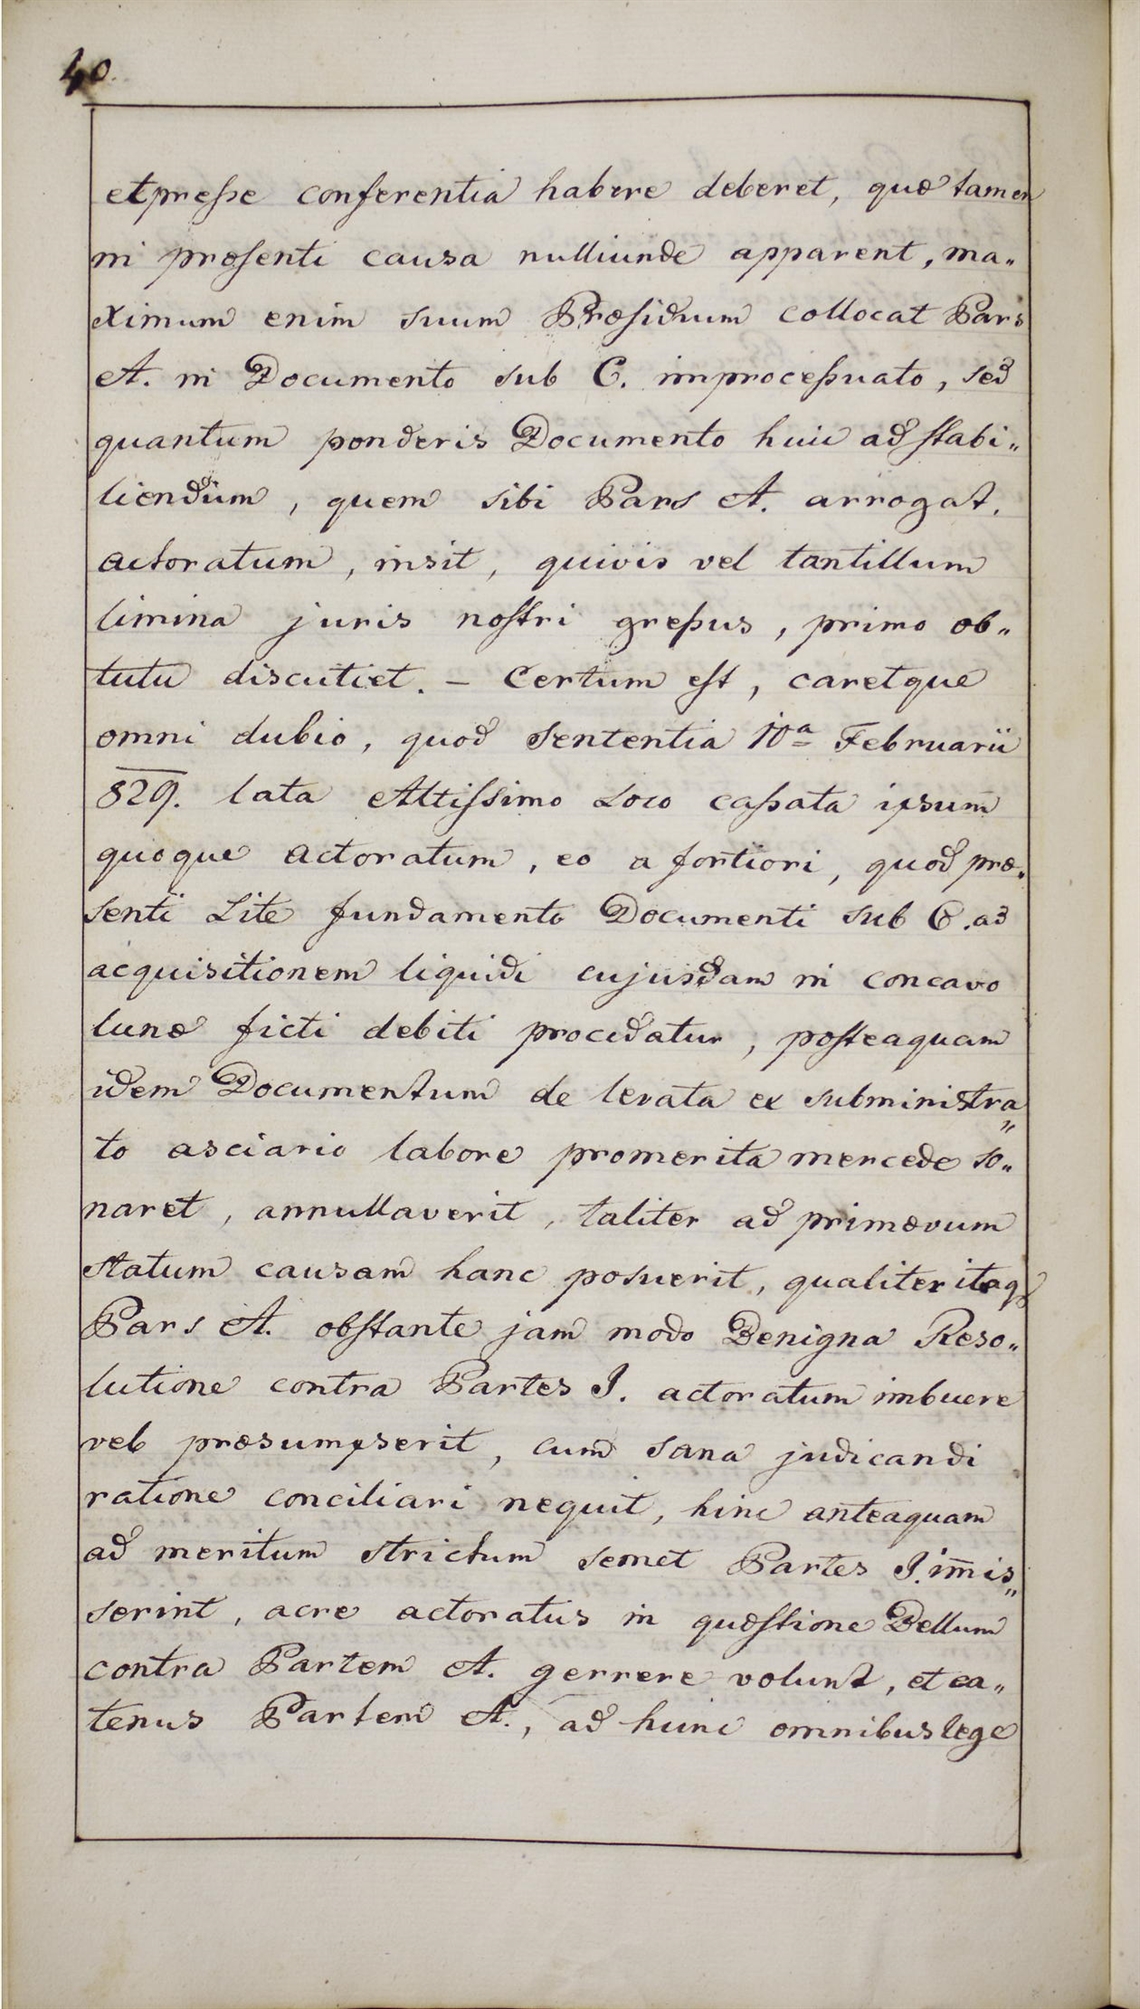 40.
expresse conferentia habere deberet, quæ tamen
in præsenti causa nulliunde apparent, ma„
ximum enim suum Præsidium collocat Pars
A. in Documento sub C. improcessuato, sed
quantum ponderis Documento huic ad stabi„
liendum, quem sibi Pars A. arrogat,
actoratum, insit, quivis vel tantillum
limina juris nostri gressus, primo ob„
tutu discutiet. – Certum est, caretque
omni dubio, quod Sententia 10a Februarii
829. lata Altissimo Loco cassata ipsum
quoque actoratum, eo a fortiori, quod præ„
senti Lite fundamento Documenti sub C. ad
acquisitionem liquidi cujusdam in concavo
lunæ ficti debiti procedatur, posteaquam
idem Documentum de levata ex subministra„
to asciario labore promerita mercede so„
naret, annullaverit, taliter ad primævum
statum causam hanc posuerit, qualiter itaq
Pars A. obstante jam modo Benigna Reso„
lutione contra Partes I. actoratum imbuere
vel præsumpserit, cum sana judicandi
ratione conciliari nequit, hinc anteaquam
ad meritum strictum semet Partes I. im̄is„
serint, acre actoratus in quæstione Bellum
contra Partem A. gerrere volunt, et ea„
tenus Partem A., ad hunc omnibus lege